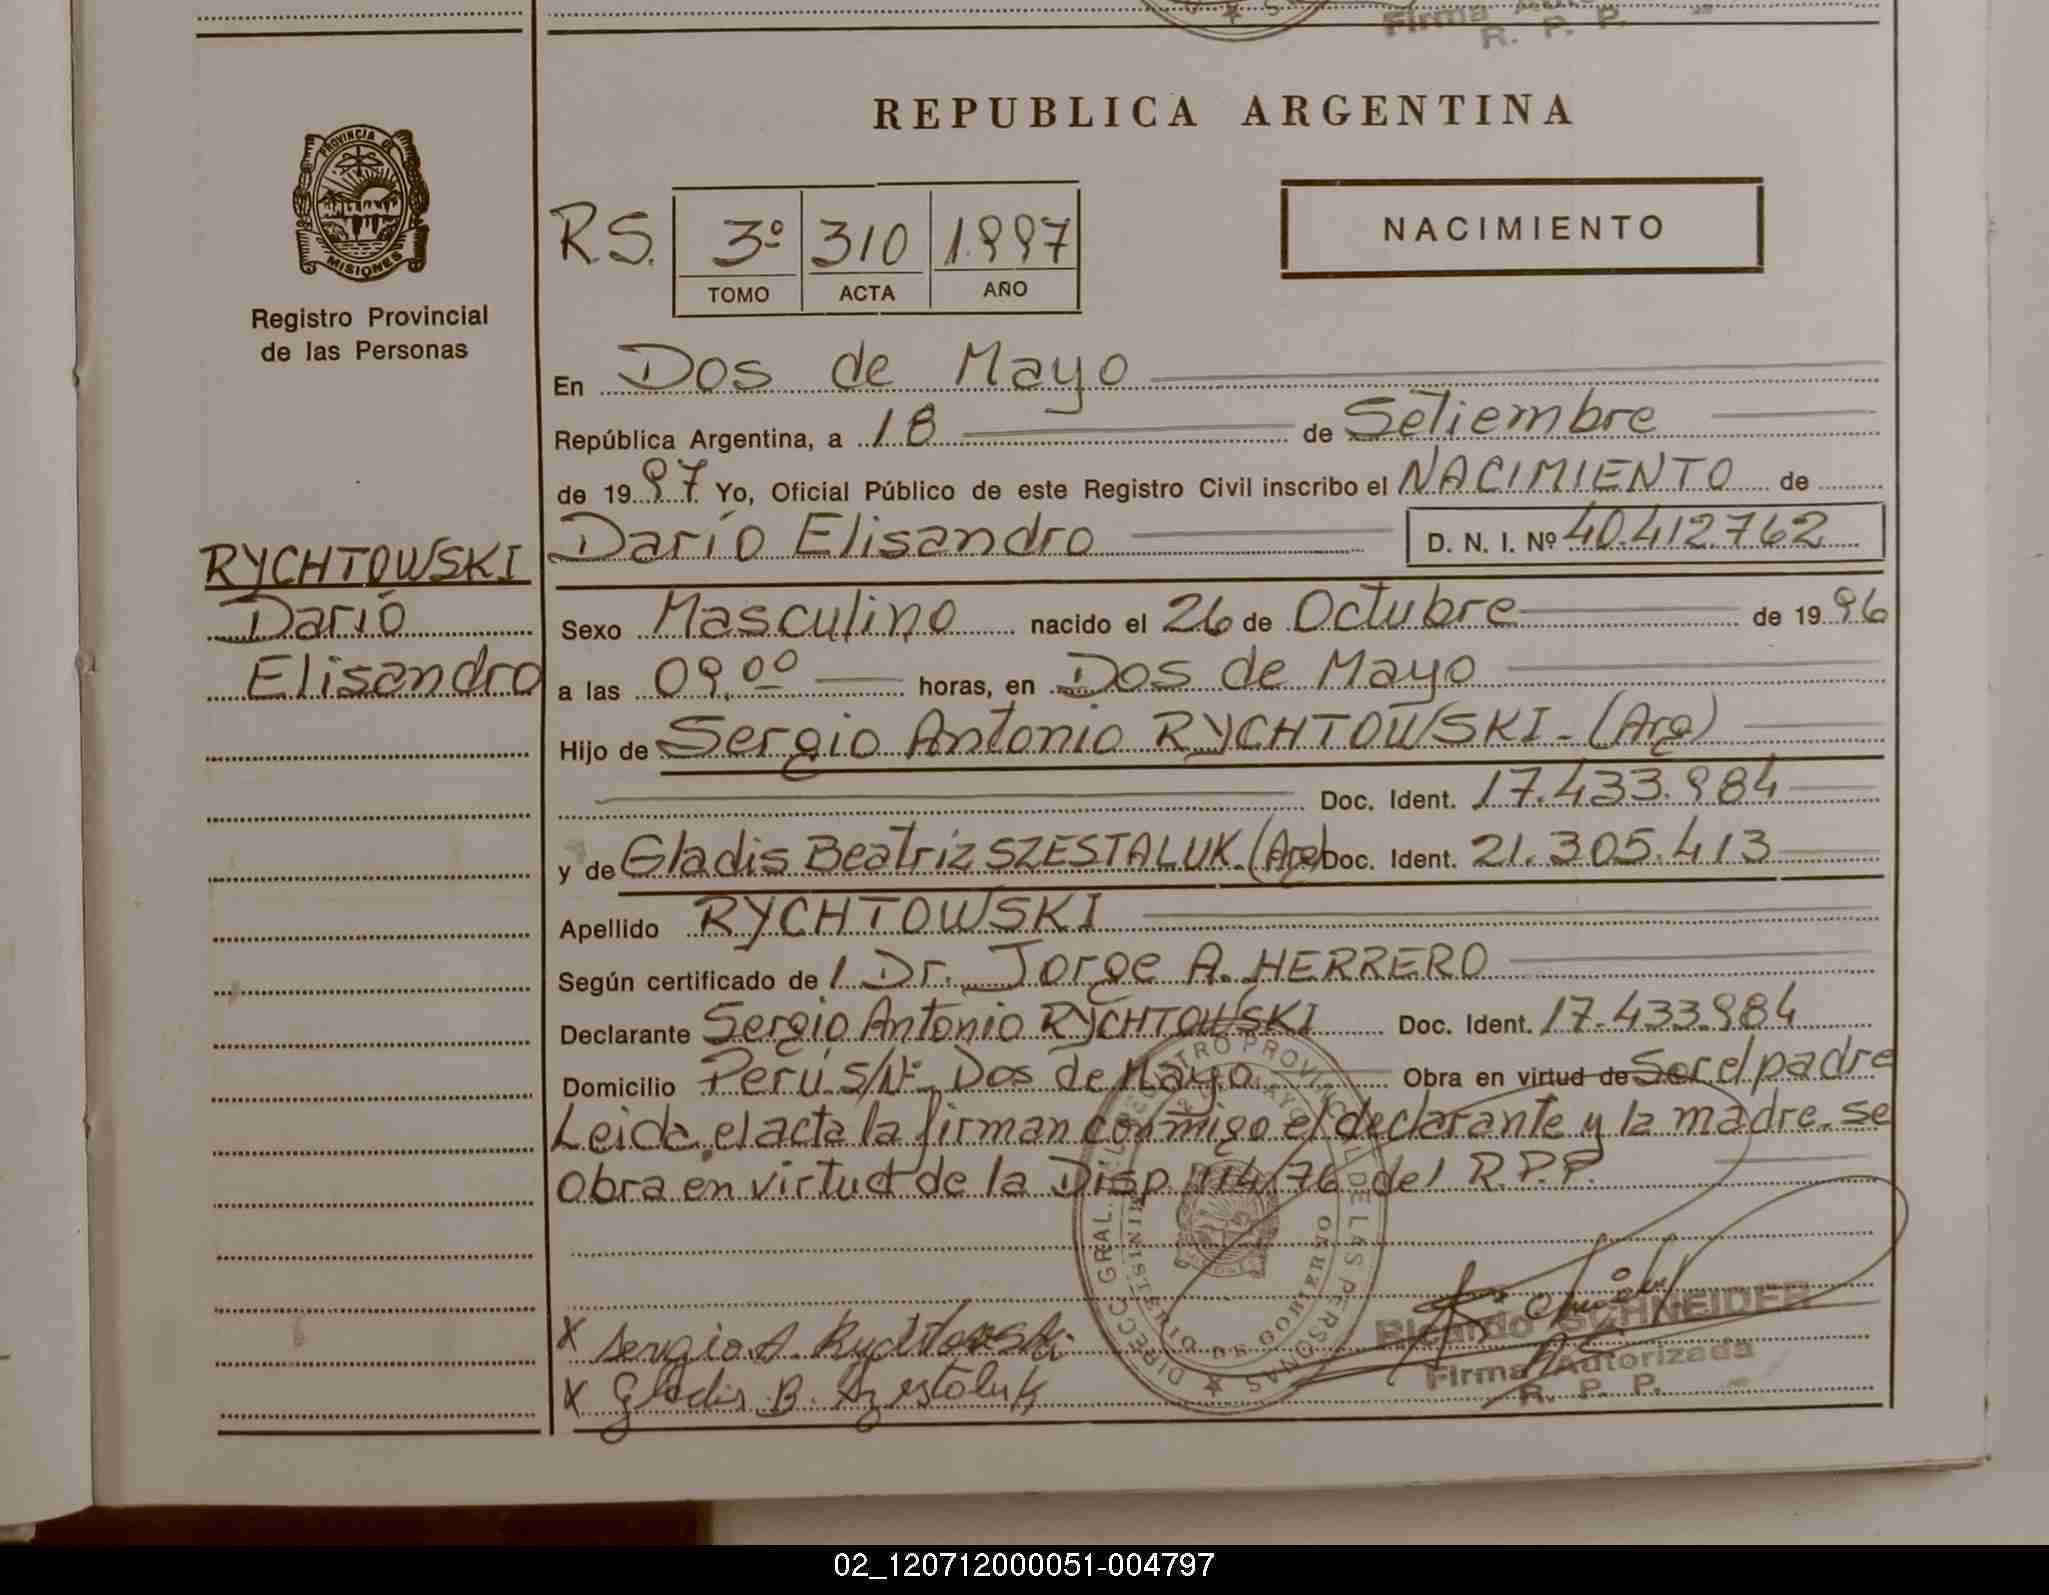 Firma
R. P. P.
PROVINCIA DE
MISIONES
Registro Provincial
de las Personas
RYCHTOWSKI
Darío
Elisandro
REPUBLICA ARGENTINA
R.S. 3º 310 1.997
TOMO ACTA AÑO
NACIMIENTO
En Dos de Mayo
República Argentina, a 18 de Setiembre
de 1997 Yo, Oficial Público de este Registro Civil inscribo el NACIMIENTO de
Darío Elisandro D. N. I. Nº 40.412.762
Sexo Masculino nacido el 26 de Octubre de 1996
a las 09,00 horas, en Dos de Mayo
Hijo de Sergio Antonio RYCHTOWSKI - (Arg)
Doc. Ident. 17.433.984
y de Gladis Beatriz SZESTALUK (Arg) Doc. Ident. 21.305.413
Apellido RYCHTOWSKI
Según certificado de l Dr. Jorge A. HERRERO
Declarante Sergio Antonio RYCHTOWSKI Doc. Ident. 17.433.984
Domicilio Perú S/Nº Dos de Mayo Obra en virtud de Ser el padre
Leida el acta la firman conmigo el declarante y la madre. se
Obra en virtud de la Disp. 114/76 del R.P.P.
DIRECC. GRAL. DEL REGISTRO PROVINCIAL DE LAS PERSONAS
MINISTERIO DE GOBIERNO
X Sergio A. Rychtowski
X Gladis B. Szestaluk
Ricardo SCHNEIDER
Firma Autorizada
R. P. P.
02_120712000051-004797